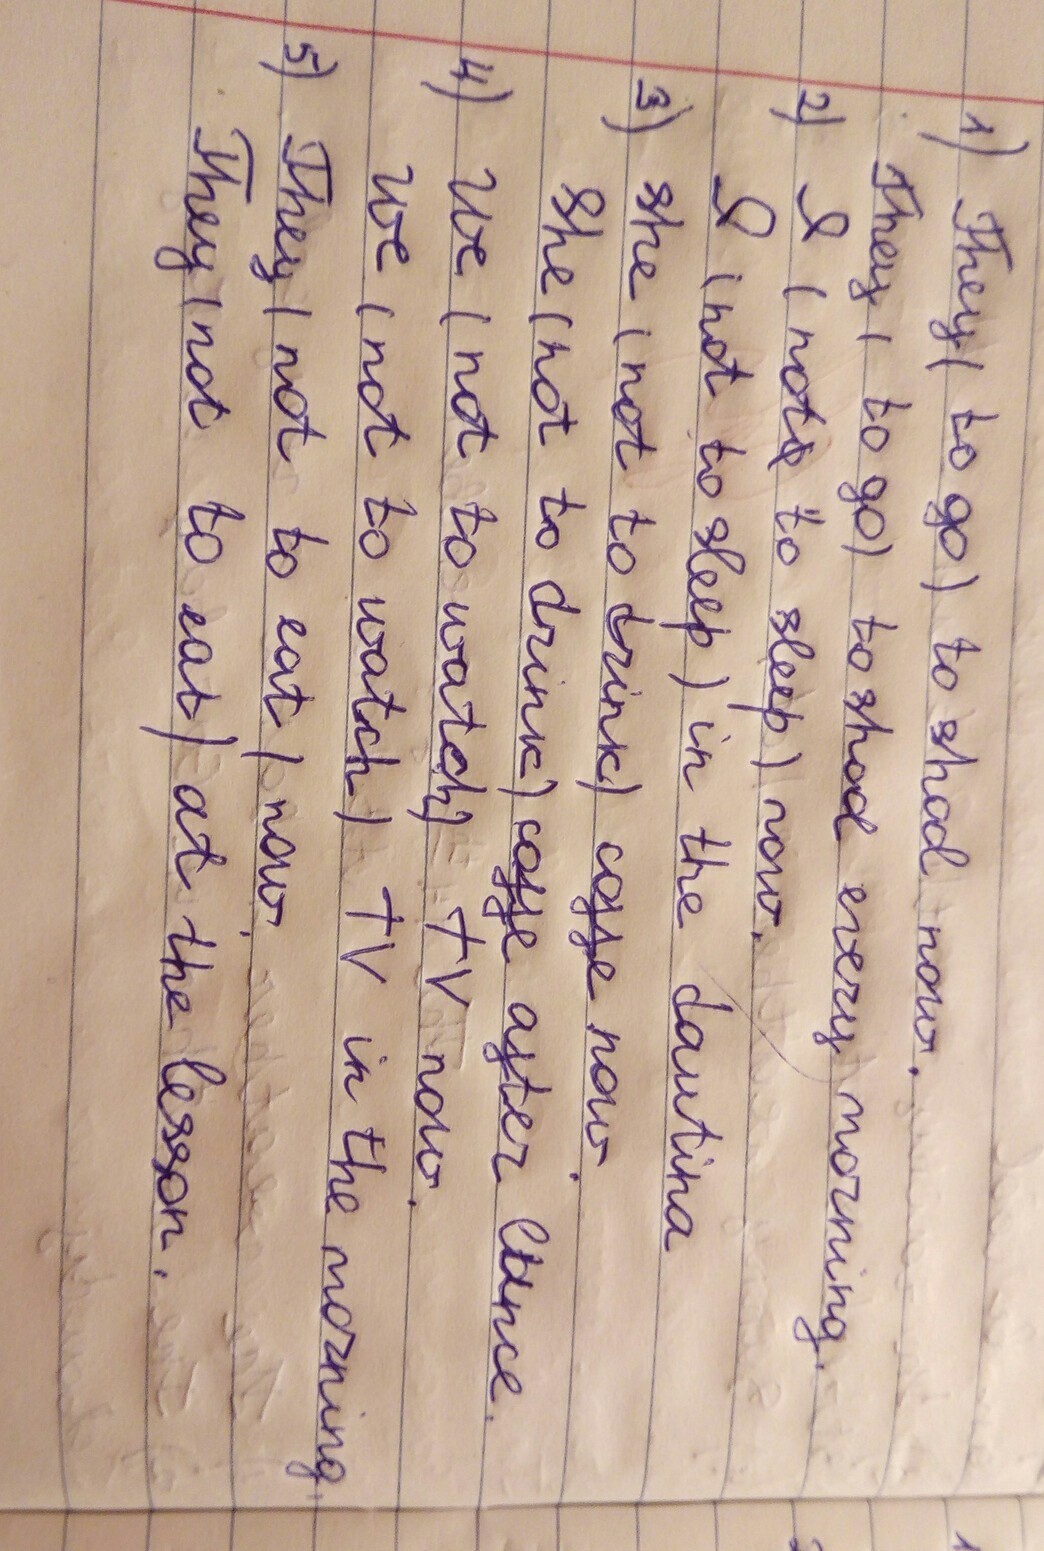 1) They ( to go ) to shod now.
They ( to go) to shod every morning.
2) I ( not to sleep ) now.
I ( not to sleep ) in the dautina
3) she ( not to drink) coffe now.
She ( not to drink) coffe after lance.
4) We ( not to watch) TV now.
We ( not to watch ) TV in the morning.
5) They ( not to eat ) now.
They ( not to eat ) at the lesson.